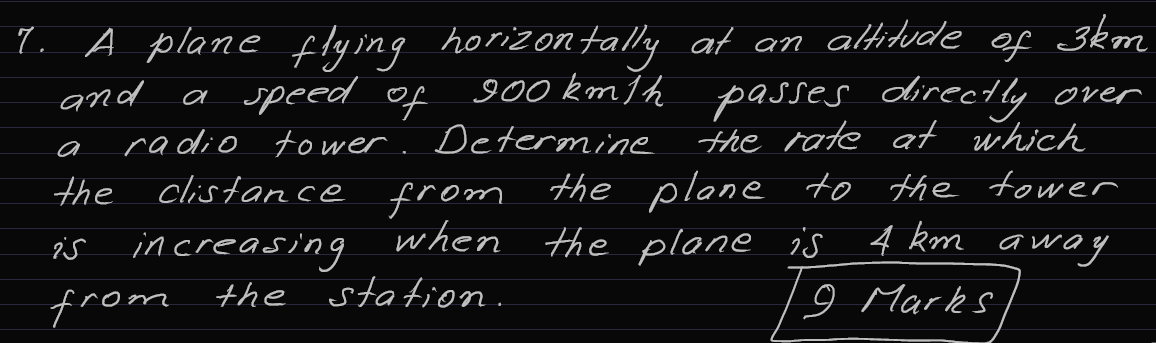 7. A plane flying horizontally at an altitude of 3km
and a speed of 900 km/h passes directly over
a radio tower. Determine the rate at which
the distance from the plane to the tower
is increasing when the plane is 4 km away
from the station.
9 Marks